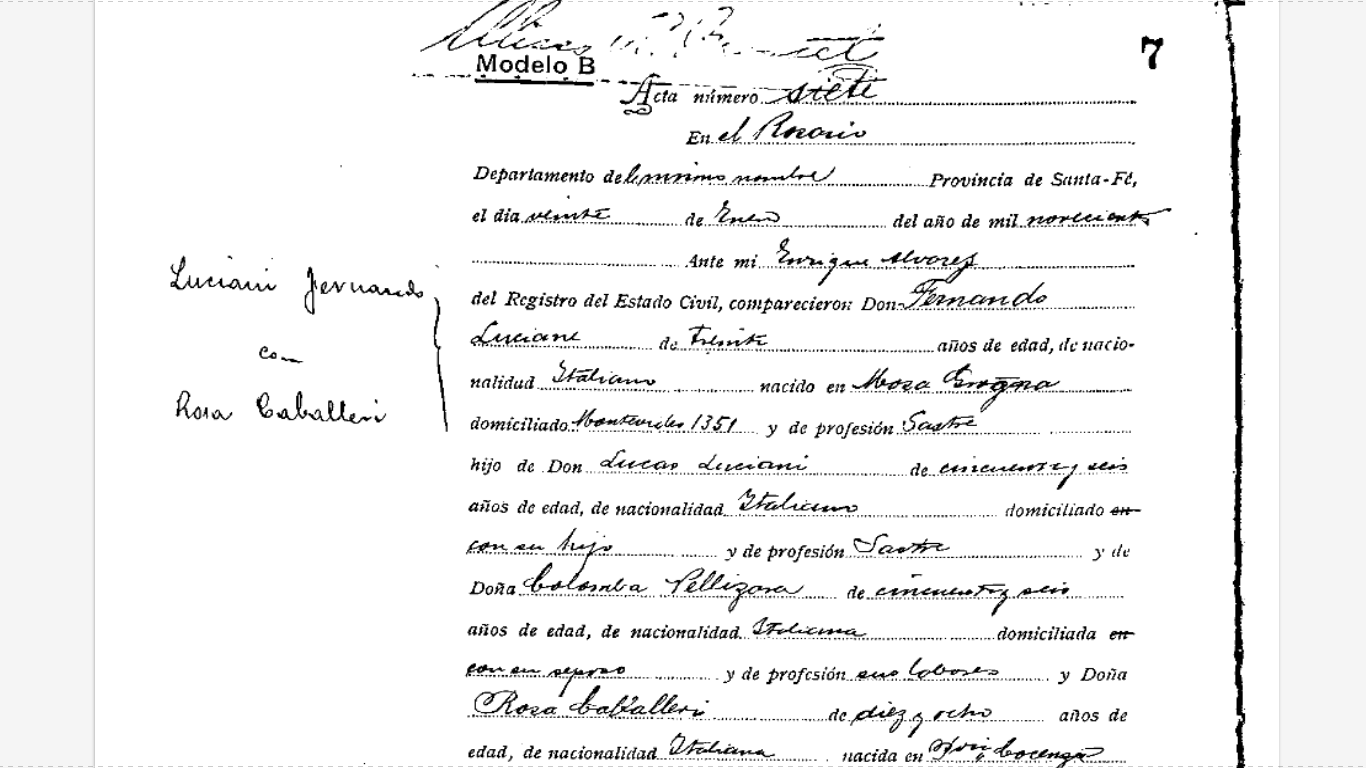 7
Modelo B
Acta número siete
En el Rosario
Departamento del mismo nombre Provincia de Santa-Fé,
el dia veinte de Enero del año de mil novecientos
Ante mi Enrique Alvarez
Luciani Fernando
con
Rosa Caballeri
del Registro del Estado Civil, comparecieron Don Fernando
Luciani de treinta años de edad, de nacio-
nalidad Italiano nacido en
domiciliado Montevideo 1351 y de profesión Sastre
hijo de Don Lucas Luciani de cincuenta y seis
años de edad, de nacionalidad Italiano domiciliado en
con su hijo y de profesión Sastre y de
Doña Colomba Pellizara de cincuenta y seis
años de edad, de nacionalidad Italiana domiciliada en
con su esposo y de profesión sus labores y Doña
Rosa Caballeri de diez y ocho años de
edad, de nacionalidad Italiana nacida en